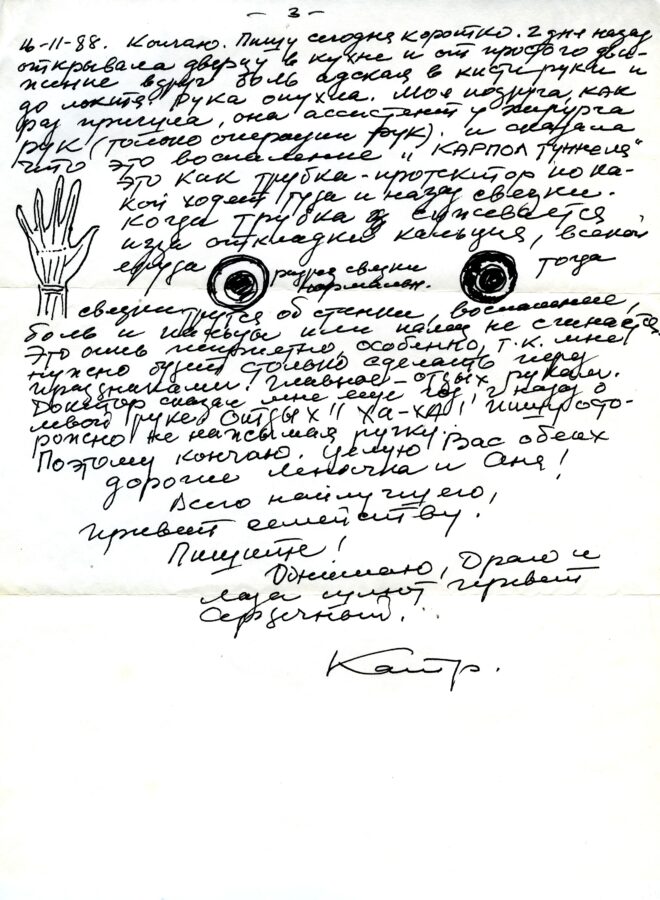 - 3 -
16-11-88. Кончаю. Пишу сегодня коротко. 2 дня назад
открывала дверцу в кухне и от простого дви-
жение вдруг боль адская в кисти руки и
до локтя. Рука опухла. Моя подруга, как
раз пришла, она ассистент у хирурга
рук (только операции рук). и сказала
что это воспаление "КАРПОЛ ТУННЕЛЯ"
это как трубка-протектор по ка-
кой ходят туда и назад связки.
когда трубка суживается
изза откладки кальция, всякой
ерунда разрез связки тогда
нормальн.
связки трутся об стенки, воспаление,
боль и пальцы или палец не сгинается
Это очень неприятно, особенно, т.к. мне
нужно будет столько сделать перед
праздниками! Главное - отдых рукам.
Доктор сказал мне еще год назад о
левой руке. Отдых!! Ха-ха! пишу осто-
рожно не нажимая ручку.
Поэтому кончаю. Целую Вас обеих
дорогие Леночка и Аня!
Всего наилучшего,
привет семейству!
Пишите!
Обнимаю, Драго и
шлют привет
сердечный...
Катр.